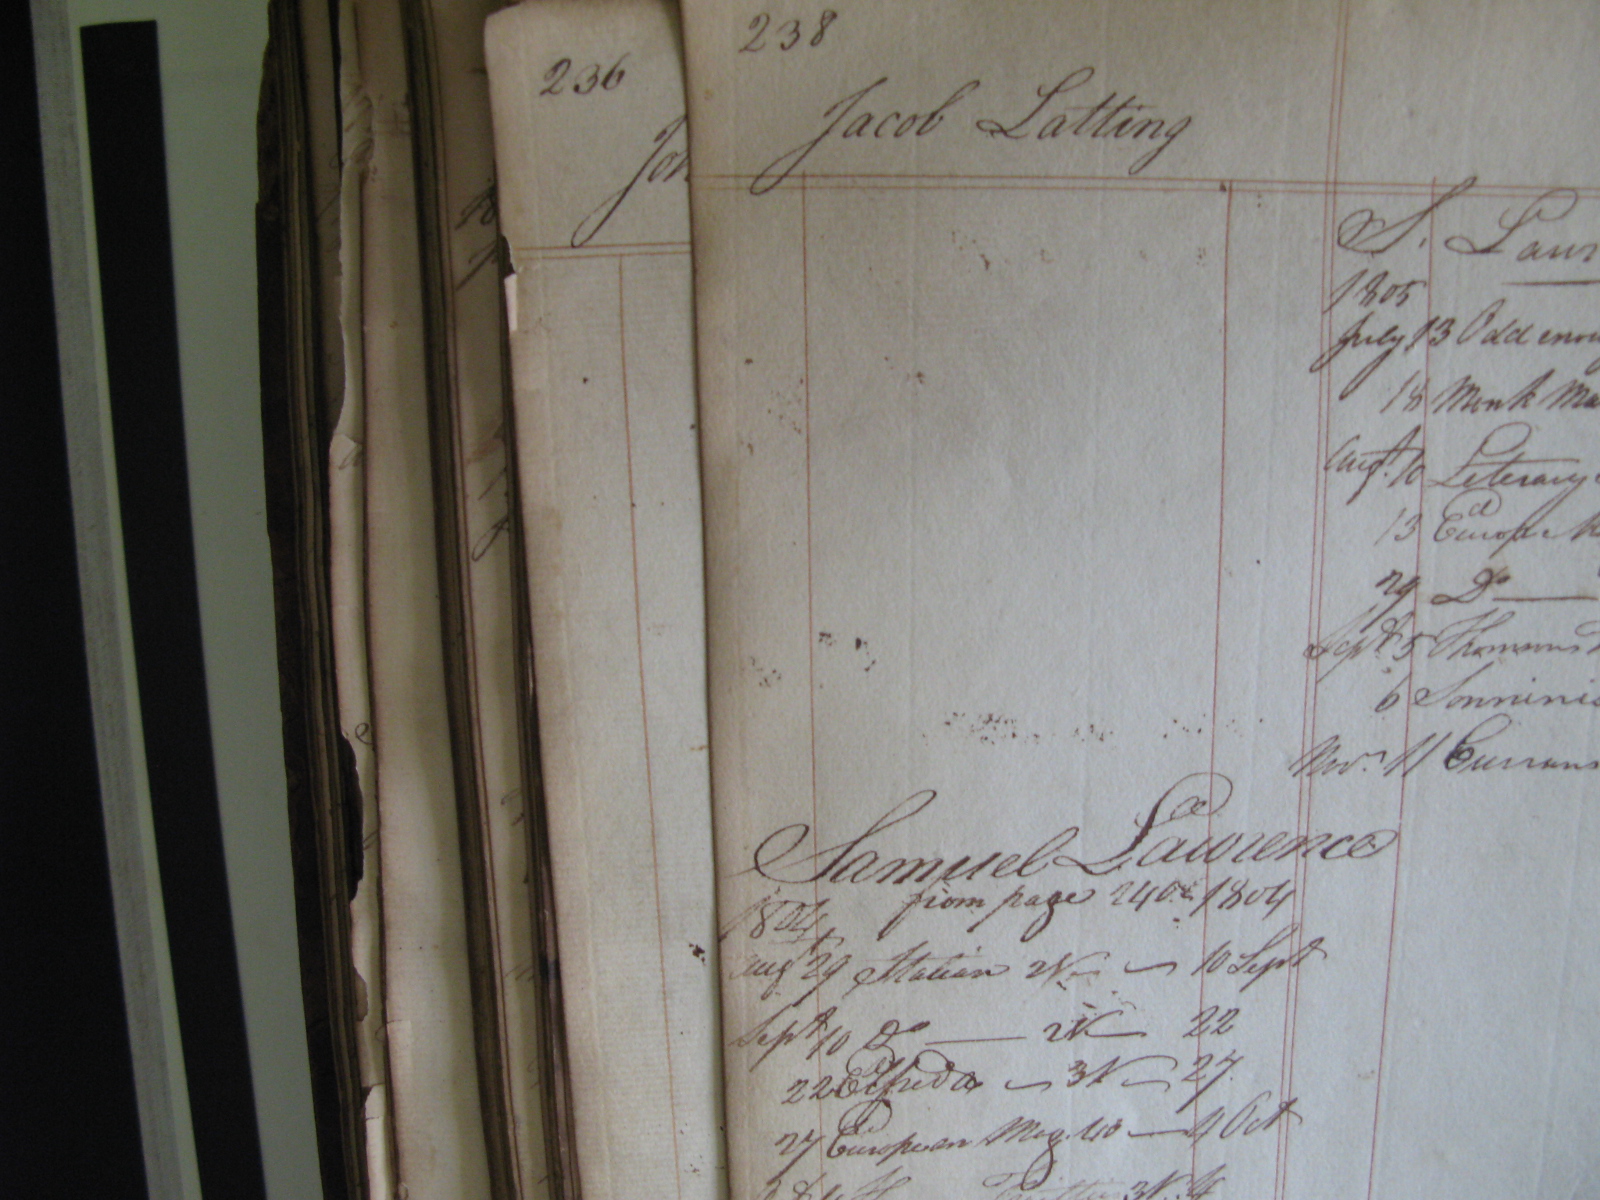 238
236
Jacob Latting
Joh
S. Lawr
1805
July 13 Odd enou
18 Monk Ma
Augt. 10 Literary
13 Europe. M
29 Do
Sept 5 Thomsons
6 Sonninis
Nov. 11 Currans
Samuel Lawrence
from page 240 1804
1804
Augt 29 Italian 2V 10 Sept
Sept 10 Do 2V 22
22 Elfreda 3V 27
27 European Mag. 40 4 Oct
3V.